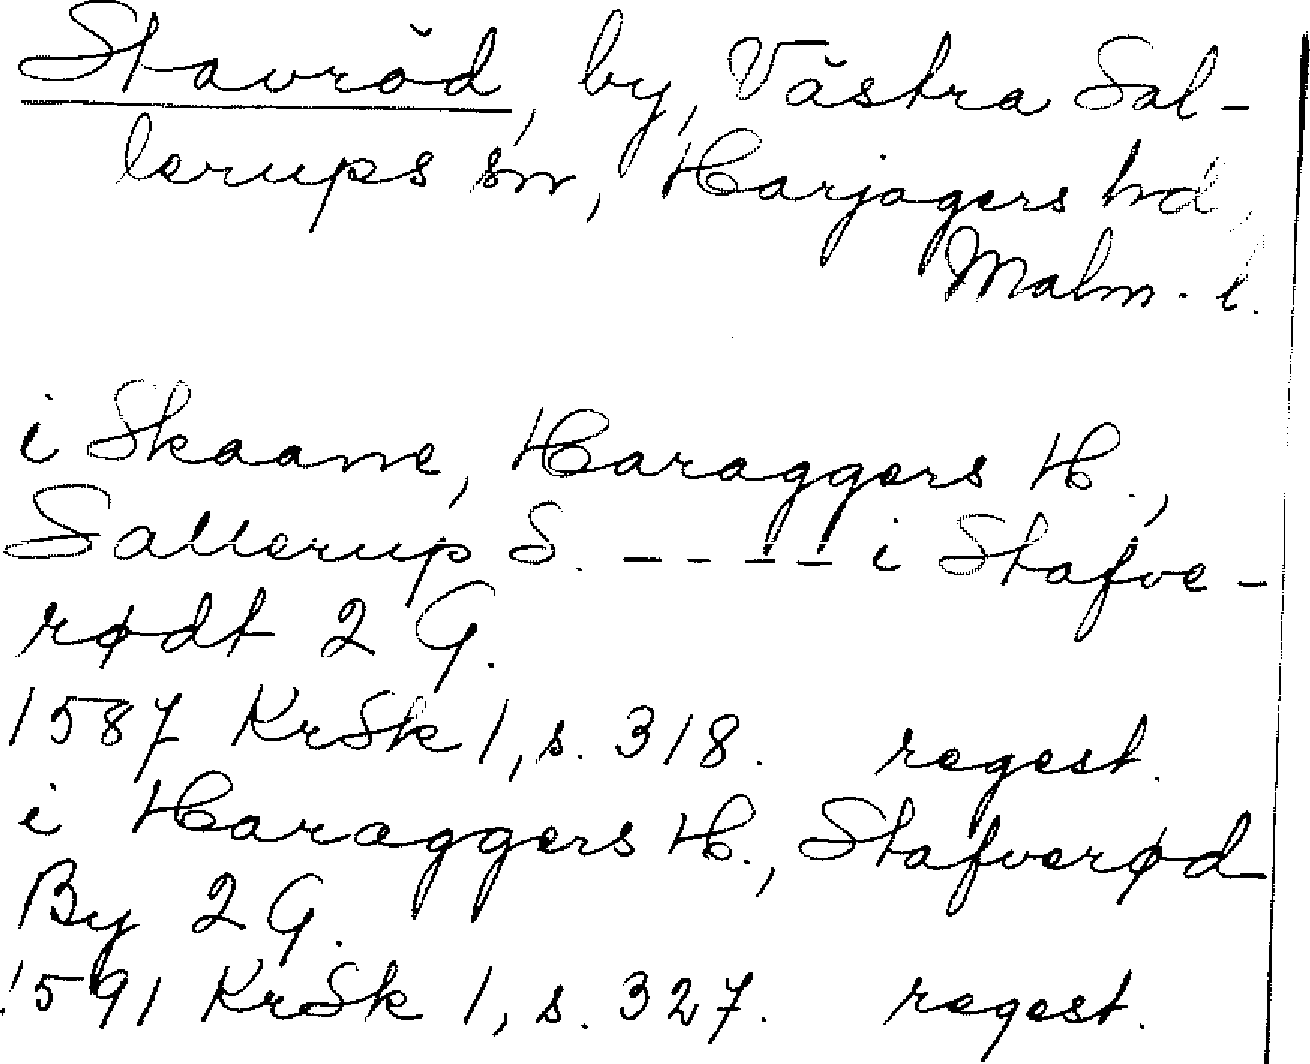 Stavröd, by, Västra Sal-
lerups sn, Harjagers hd,
Malm. l.
i Skaane, Haraggers H.,
Sallerup S. ----- i Stafve-
rødt 2 G.
1587 KrSk 1, s. 318. regest.
i Haraggers H., Stafverød
By 2 G.
1591 KrSk 1, s. 327. regest.